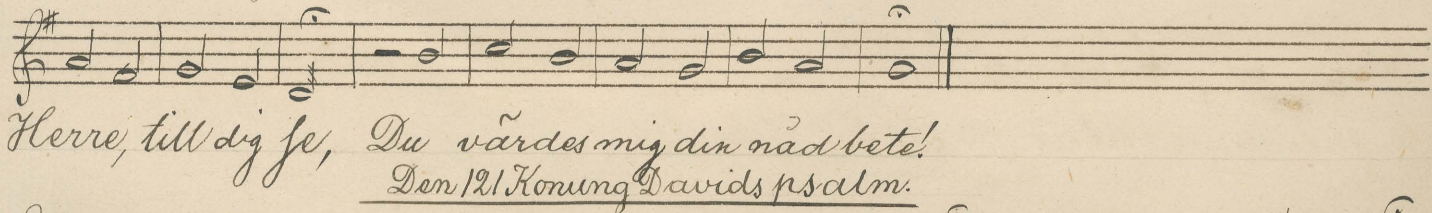 Herre, till dig se, Du värdes mig din nåd bete!
Den 121 Konung Davids psalm.